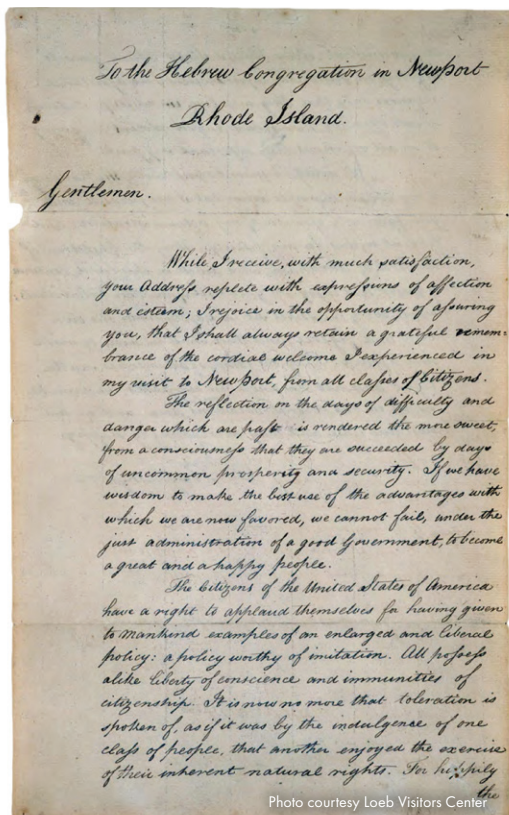 To the Hebrew Congregation in Newport
Rhode Island.
Gentlemen.
While, I receive, with much satisfaction,
your Address replete with expressions of affection
and esteem; I rejoice in the opportunity of assuring
you, that I shall always retain a grateful remem-
brance of the cordial welcome I experienced in
my visit to Newport, from all classes of Citizens.
The reflection on the days of difficulty and
danger which are past is rendered the more sweet,
from a consciousness that they are succeeded by days
of uncommon prosperity and security. If we have
wisdom to make the best use of the advantages with
which we are now favored, we cannot fail, under the
just administration of a good Government, to become
a great and a happy people.
The Citizens of the United States of America
have a right to applaud themselves for having given
to mankind examples of an enlarged and liberal
policy: a policy worthy of imitation. All possess
alike liberty of conscience and immunities of
citizenship. It is now no more that toleration is
spoken of, as if it was by the indulgence of one
class of people, that another enjoyed the exercise
of their inherent natural rights. For happily
the
Photo courtesy Loeb Visitors Center